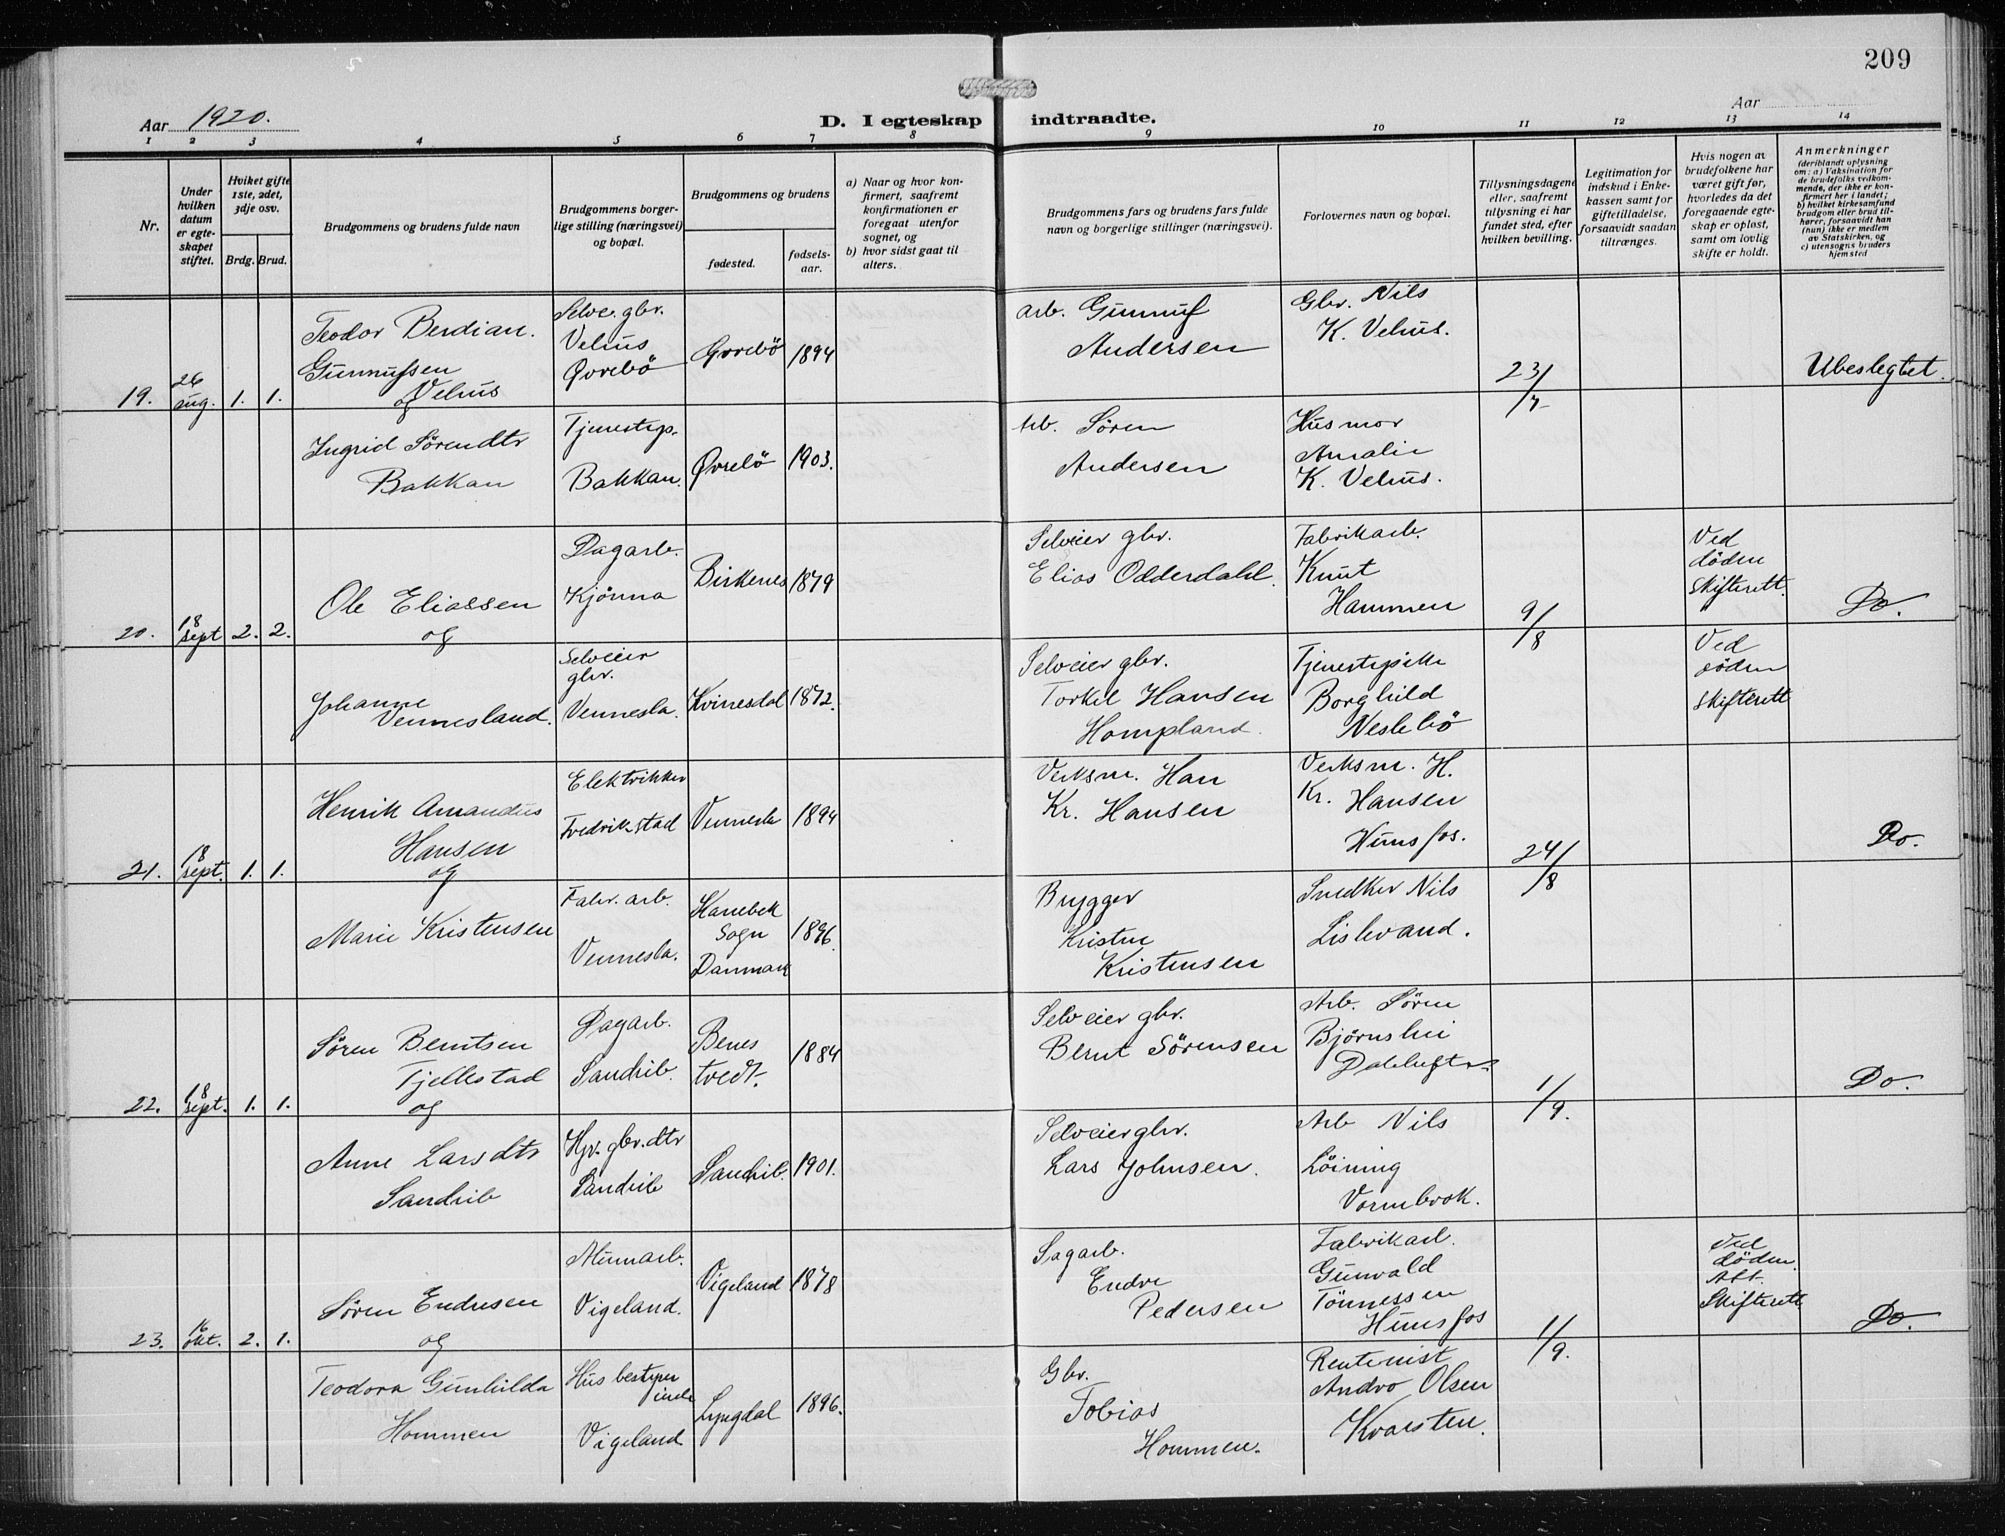 209
Aar 1920.
D. I egteskap indtraadte.
Aar
1 2 3 4 5 6 7 8 9 10 11 12 13 14
Nr.
Under hvilken datum er egteskapet stiftet.
Hviket gifte 1ste, 2det, 3dje osv.
Brdg. Brud.
Brudgommens og brudens fulde navn
Brudgommens borgerlige stilling (næringsvei) og bopæl.
Brudgommens og brudens
fødested.
fødselsaar.
a) Naar og hvor konfirmert, saafremt konfirmationen er foregaat utenfor sognet, og
b) hvor sidst gaat til alters.
Brudgommens fars og brudens fars fulde navn og borgerlige stillinger (næringsvei).
Forlovernes navn og bopæl.
Tillysningsdagene eller, saafremt tillysning ei har fundet sted, efter hvilken bevilling.
Legitimation for indskud i Enkekassen samt for giftetilladelse, forsaavidt saadan tiltrænges.
Hvis nogen av brudefolkene har været gift før, hvorledes da det foregaaende egteskap er opløst, samt om lovlig skifte er holdt.
Anmerkninger (deriblandt oplysning om: a) Vaksination for de brudefolks vedkommende, der ikke er konfirmert her i landet; b) hvilket kirkesamfund brudgom eller brud tilhører, forsaavidt han (hun) ikke er medlem av Statskirken, og c) utensogns bruders hjemsted
19. 26 aug. 1. 1.
Teodor Berdian.
Gunnufsen
Vehus
og
Selvei. gbr.
Vehus
Øvrebö
Øvrebö 1894
arb. Gunnuf
Andersen
Gbr. Nils
K. Vehus.
23/7
Ubeslegtet.
Ingrid Sørendtr
Bakkan
Tjenestep.
Bakkan.
Øvrebö 1903.
Arb. Søren
Andersen
Husmor
Amalie
K. Vehus.
20. 18 sept 2. 2.
Ole Eliassen
og
Dagarb.
Kjönna
Birkenes 1879
Selveier gbr.
Elias Odderdahl.
Fabrikarb.
Knut
Hammen
9/8
Ved
döden
Skifterett.
Do.
Johanne
Vennesland.
Selveier
gbr.
Vennesla.
Kvinesdal 1872.
Selveier gbr.
Torkel Hansen
Hompland.
Tjenestepike
Borghild
Neslebö
Ved
döden
Skifterett
21. 18 sept. 1. 1.
Henrik Amandus
Hansen
og
Elektrikker
Fredrikstad
Vennesla 1894
Verksm. Han
Kr. Hansen
Verksm. H.
Kr. Hansen
Hunsfos.
24/8
Do.
Marie Kristensen
Fabr. arb.
Vennesla.
Hanebek
Sogn
Danmark
1896
Brygger
Kristen
Kristensen
Snedker Nils
Lislevand.
22. 18 sept. 1. 1.
Søren Berntsen
Tjellestad
og
Dagarb.
Sandrib.
Benes
tvedt.
1884
Selveier gbr.
Bernt Sörensen
Arb. Sören
Bjørnslii
1/9.
Do.
Anne Larsdtr
Sandrib
Hjv. gbr. dtr
Sandrib
Sandrib. 1901.
Selveier gbr.
Lars Johnsen.
Arb Nils
Löining
Vormbrok.
23. 16 okt. 2. 1.
Søren Endresen
og
Alumarb.
Vigeland.
Vigeland 1878
Sagarb.
Endre
Pedersen
Fabrikarb.
Gunvald
Tönnessen
Hunsfos
1/9.
Ved
döden.
Att.
Skifterett
Do.
Teodora Gunhilda
Hommen
Husbestyrer
inde
Vigeland
Lyngdal 1896.
Gbr.
Tobias
Hommen.
Rentenist
Andro Olsen
Kvarsten.